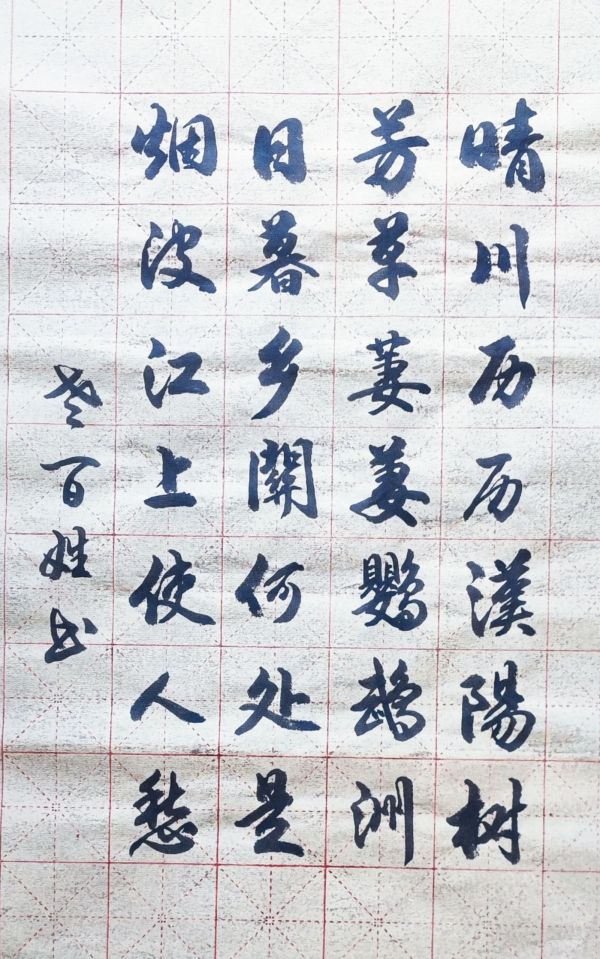 晴川历历漢陽树
芳草萋萋鹦鹉洲
日暮乡關何处是
烟波江上使人愁
老百姓书